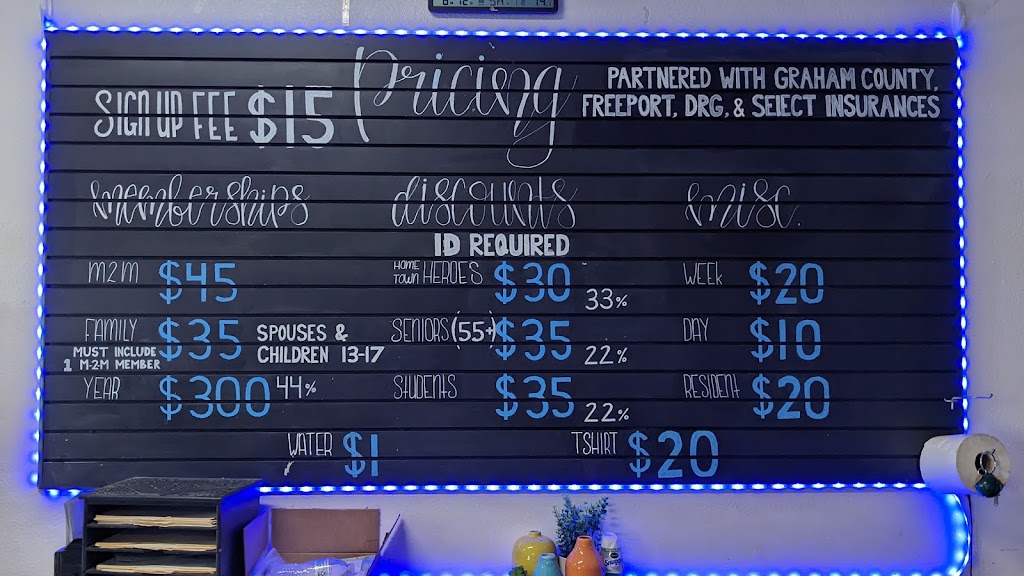 Pricing
SIGN UP FEE $15
PARTNERED WITH GRAHAM COUNTY,
FREEPORT, DRG, & SELECT INSURANCES
memberships
discounts
misc.
ID REQUIRED
M2M $45
HOME TOWN HEROES $30 33%
WEEK $20
FAMILY $35 SPOUSES &
CHILDREN 13-17
MUST INCLUDE
1 M-2-M MEMBER
SENIORS (55+) $35 22%
DAY $10
YEAR $300 44%
STUDENTS $35 22%
RESIDENT $20
WATER $1
TSHIRT $20